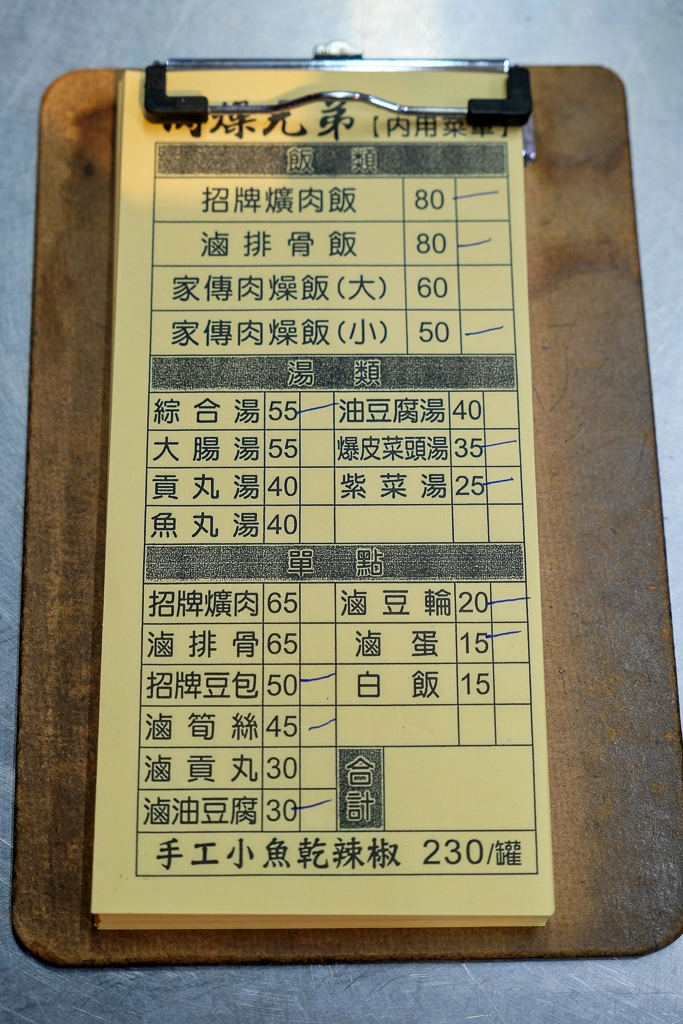 燥兄弟【內用菜單】
飯 類
招牌爌肉飯 80
滷排骨飯 80
家傳肉燥飯(大) 60
家傳肉燥飯(小) 50
湯 類
綜合湯 55 油豆腐湯 40
大腸湯 55 爆皮菜頭湯 35
貢丸湯 40 紫菜湯 25
魚丸湯 40
單 點
招牌爌肉 65 滷豆輪 20
滷排骨 65 滷蛋 15
招牌豆包 50 白飯 15
滷筍絲 45
滷貢丸 30 合計
滷油豆腐 30
手工小魚乾辣椒 230/罐